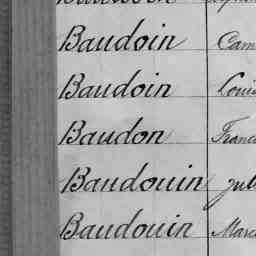 Baudoin Cam
Baudoin Loui
Baudon Franc
Baudouin Jul
Baudouin Marc